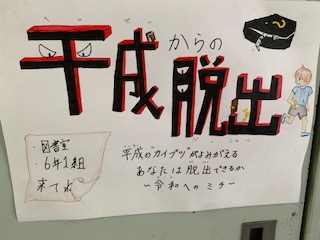 へいせい
平成からの
脱出
だっしゅつ
・図書室
・6年1組
来てね
平成の"カイブツ"がよみがえる
あなたは脱出できるか
～令和へのミチ～
?